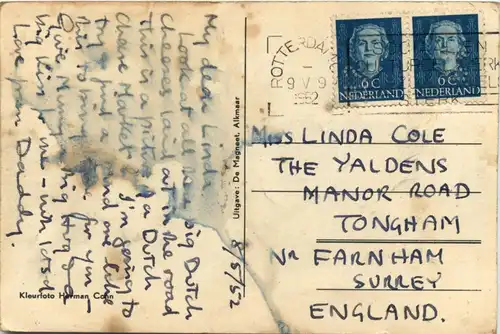 My dear Linda
Look at all these big Dutch
cheeses laid out in the road
This is a picture of a Dutch
Cheese Market. I'm going to
try & find a one like
this to bring for you –
Give Mummy a big Hug &
big kiss for me –
Love from Daddy.
8/5/52
Uitgave: De Magneet, Alkmaar
Kleurfoto Herman Conn
ROTTERDAM
9 V
1952
6C
NEDERLAND
6C
NEDERLAND
MISS LINDA COLE
THE YALDENS
MANOR ROAD
TONGHAM
NR FARNHAM
SURREY
ENGLAND.